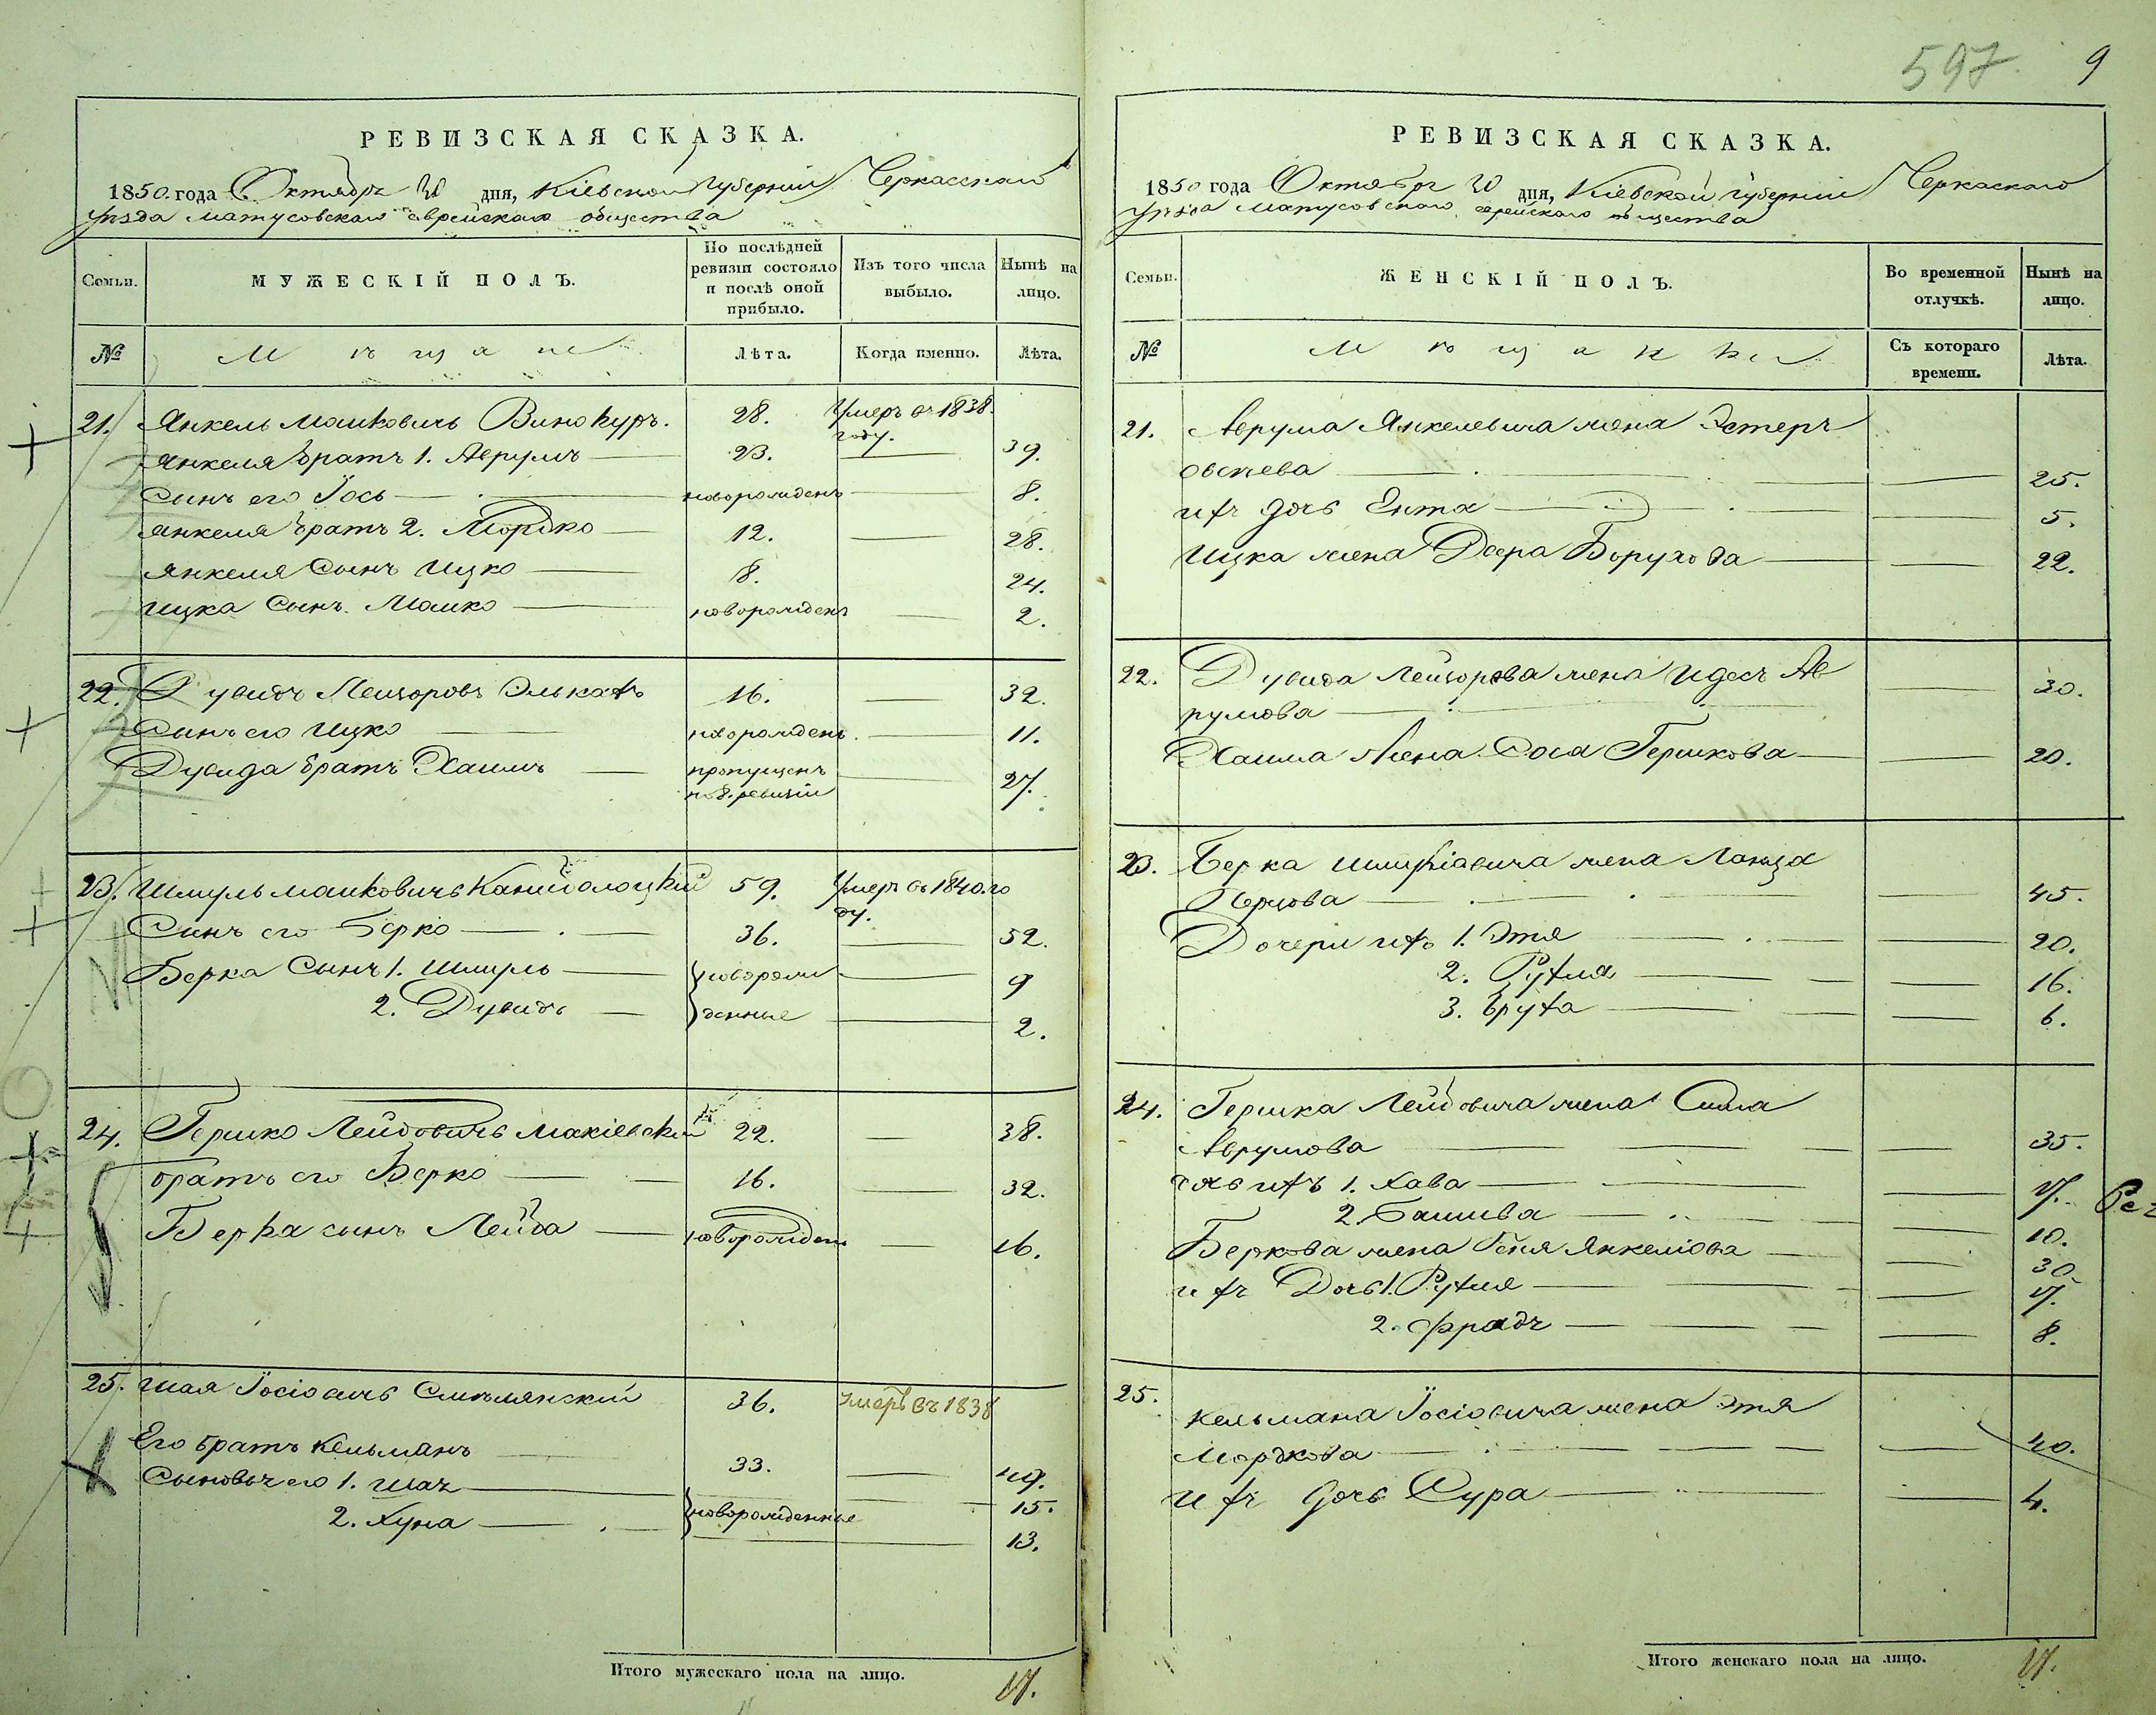 597. 9
РЕВИЗСКАЯ СКАЗКА.
1850 года Октября 20 дня, Кіевской Губерніи Черкасскаго
Уѣзда Матусовскаго еврейскаго общества
Семьи.
МУЖЕСКІЙ ПОЛЪ.
По послѣдней
ревизіи состояло
и послѣ оной
прибыло.
Изъ того числа
выбыло.
Нынѣ на
лицо.
№
Мѣщане
Лѣта.
Когда именно.
Лѣта.
21. Янкель Машковичъ Винокуръ. 28. Умеръ въ 1838.
году.
Янкеля братъ 1. Аврумъ 23. 39.
Сынъ его Іось новорожденъ 8.
Янкеля братъ 2. Мордко 12. 28.
Янкеля Сынъ Ицко 8. 24.
Ицка Сынъ Мошко новорожденъ 2.
22. Дувидъ Лейзоровъ 16. 32.
Сынъ его Ицко новорожденъ. 11.
Дувида братъ Хаимъ пропущенъ 27.
по 8. ревизіи
23. Шмуль Машковичъ 59. Умеръ въ 1840. го
ду.
Сынъ его Берко 36. 52.
Берка Сынъ 1. Шмуль новорож 9
2. Дувидъ денные 2.
24. Гершко Лейбовичъ Макіевскій 22. 38.
братъ его Берко 16. 32.
Берка сынъ Лейба новорожденъ 16.
25. Шая Іосіовичъ Смѣлянскій 36. умеръ въ 1838
Его братъ Кельманъ 33. 49.
Сыновья его 1. Шая 15.
2. Хуна новорожденные 13.
Итого мужескаго пола на лицо. 17.
РЕВИЗСКАЯ СКАЗКА.
1850 года Октября 20 дня, Кіевской Губерніи Черкаскаго
Уѣзда Матусовскаго еврейскаго общества
Семьи.
ЖЕНСКІЙ ПОЛЪ.
Во временной
отлучкѣ.
Нынѣ на
лицо.
№
Мѣщанки
Съ котораго
времени.
Лѣта.
21. Аврума Янкелевича жена Эстеръ
Овсѣева 25.
ихъ дочь Ента 5.
Ицка жена Двера Борухова 22.
22. Дувида Лейзорова жена Идесъ Ав 30.
румова
Хаима жена Сося Гершкова 20.
23. Берка Шмуліовича жена
Герцова 45.
Дочери ихъ 1. Этя 20.
2. Рухля 16.
3. Бруха 6.
24. Гершка Лейбовича жена Сима
Аврумова 35.
дочь ихъ 1. Хава 17.
2. Башива 10.
Беркова жена Геня Янкеліова 30.
ихъ Дочь 1. Рухля 17.
2. Фрадъ 8.
25. Кельмана Іосіовича жена Этя
Мордкова 40.
ихъ дочь Сура 4.
Итого женскаго пола на лицо. 17.